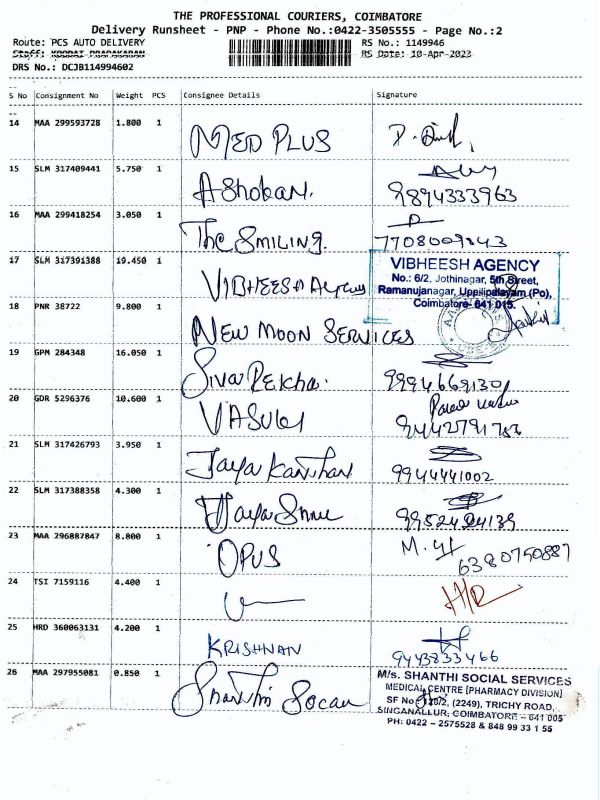 THE PROFESSIONAL COURIERS, COIMBATORE
Delivery Runsheet - PNP - Phone No.:0422-3505555 - Page No.:2
Route: PCS AUTO DELIVERY RS No.: 1149946
Staff: RS Date: 10-Apr-2023
DRS No.: DCJB114994602
S No Consignment No Weight PCS Consignee Details Signature
14 MAA 299593728 1.800 1 MED PLUS
15 SLM 317409441 5.750 1 AShokan. 9894333963
16 MAA 299418254 3.050 1 The SMILING.
17 SLM 317391388 19.450 1 VIBHEESH
VIBHEESH AGENCY
No.: 6/2, Jothinagar, 5th Street,
Ramanujanagar, Uppilipalayam (Po),
Coimbatore- 641 015.
18 PNR 38722 9.800 1 NEW MOON SERVICES
19 GPM 284348 16.050 1 Siva Rekha.
20 GDR 5296376 10.600 1 VASUKI
21 SLM 317426793 3.950 1 Jaya Kanthan 9944441002
22 SLM 317388358 4.300 1 Jaya
23 MAA 296887847 8.800 1 OPUS 6380750887
24 TSI 7159116 4.400 1
25 HRD 360063131 4.200 1 KRISHNAN 9443833466
26 MAA 297955081 0.850 1 Shanthi Socan
M/s. SHANTHI SOCIAL SERVICES
MEDICAL CENTRE [PHARMACY DIVISION]
SF No (2249), TRICHY ROAD,
SINGANALLUR, COIMBATORE – 641 005
PH: 0422 – 2575528 & 848 99 33 1 55